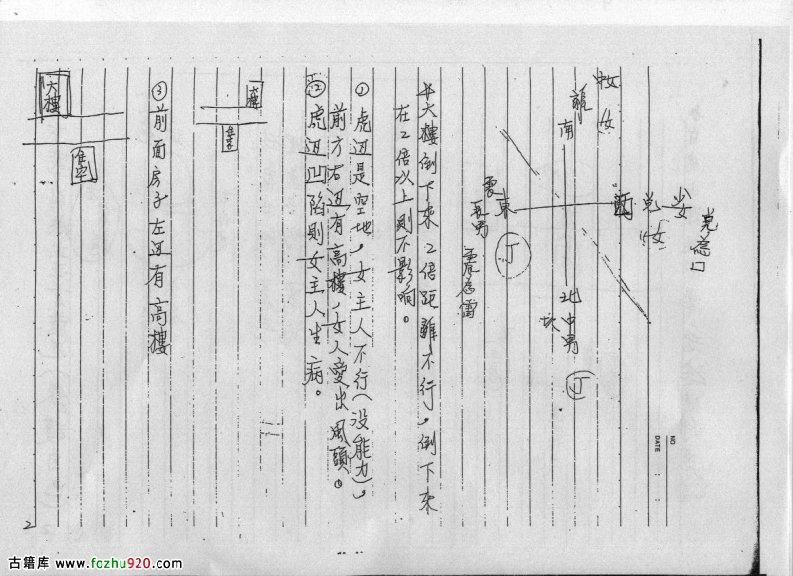 中女
女
離
南
兌為口
少女
兌
西
女
東
震
震為雷
丁
北
中男
坎
丁
大樓倒下來2倍距離不行，倒下來
在2倍以上則不影响。
① 虎边是空地，女主人不行(没能力)，
前方右边有高樓，女人愛出風頭。
② 虎边凹陷則女主人生病。
③ 前面房子左边有高樓
大樓
NO
DATE
2
古籍库 www.fozhu920.com